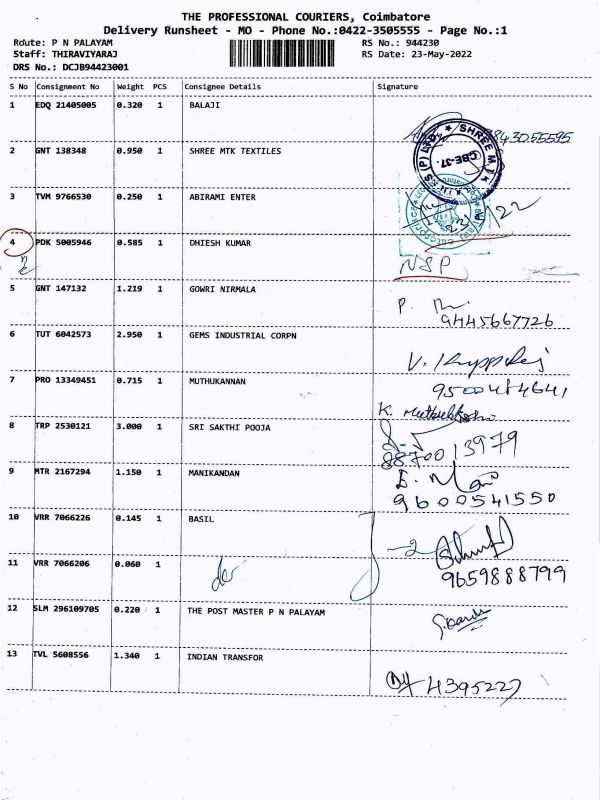 THE PROFESSIONAL COURIERS, Coimbatore
Delivery Runsheet - MO - Phone No.:0422-3505555 - Page No.:1
Route: P N PALAYAM RS No.: 944230
Staff: THIRAVIYARAJ RS Date: 23-May-2022
DRS No.: DCJB94423001
S No Consignment No Weight PCS Consignee Details Signature
1 EDQ 21405005 0.320 1 BALAJI
2 GNT 138348 0.950 1 SHREE MTK TEXTILES
SHREE MTK
(P) LTD
CBE-37.
3 TVM 9766530 0.250 1 ABIRAMI ENTER
4 PDK 5005946 0.585 1 DHIESH KUMAR
NSP
5 GNT 147132 1.219 1 GOWRI NIRMALA
P.
9445667726
6 TUT 6042573 2.950 1 GEMS INDUSTRIAL CORPN
7 PRO 13349451 0.715 1 MUTHUKANNAN
K.
8 TRP 2530121 3.000 1 SRI SAKTHI POOJA
8870013979
9 MTR 2167294 1.150 1 MANIKANDAN
E. Mani
9600541550
10 VRR 7066226 0.145 1 BASIL
-2
11 VRR 7066206 0.060 1
do
9659888799
12 SLM 296109705 0.220 1 THE POST MASTER P N PALAYAM
13 TVL 5608556 1.340 1 INDIAN TRANSFOR
4395227